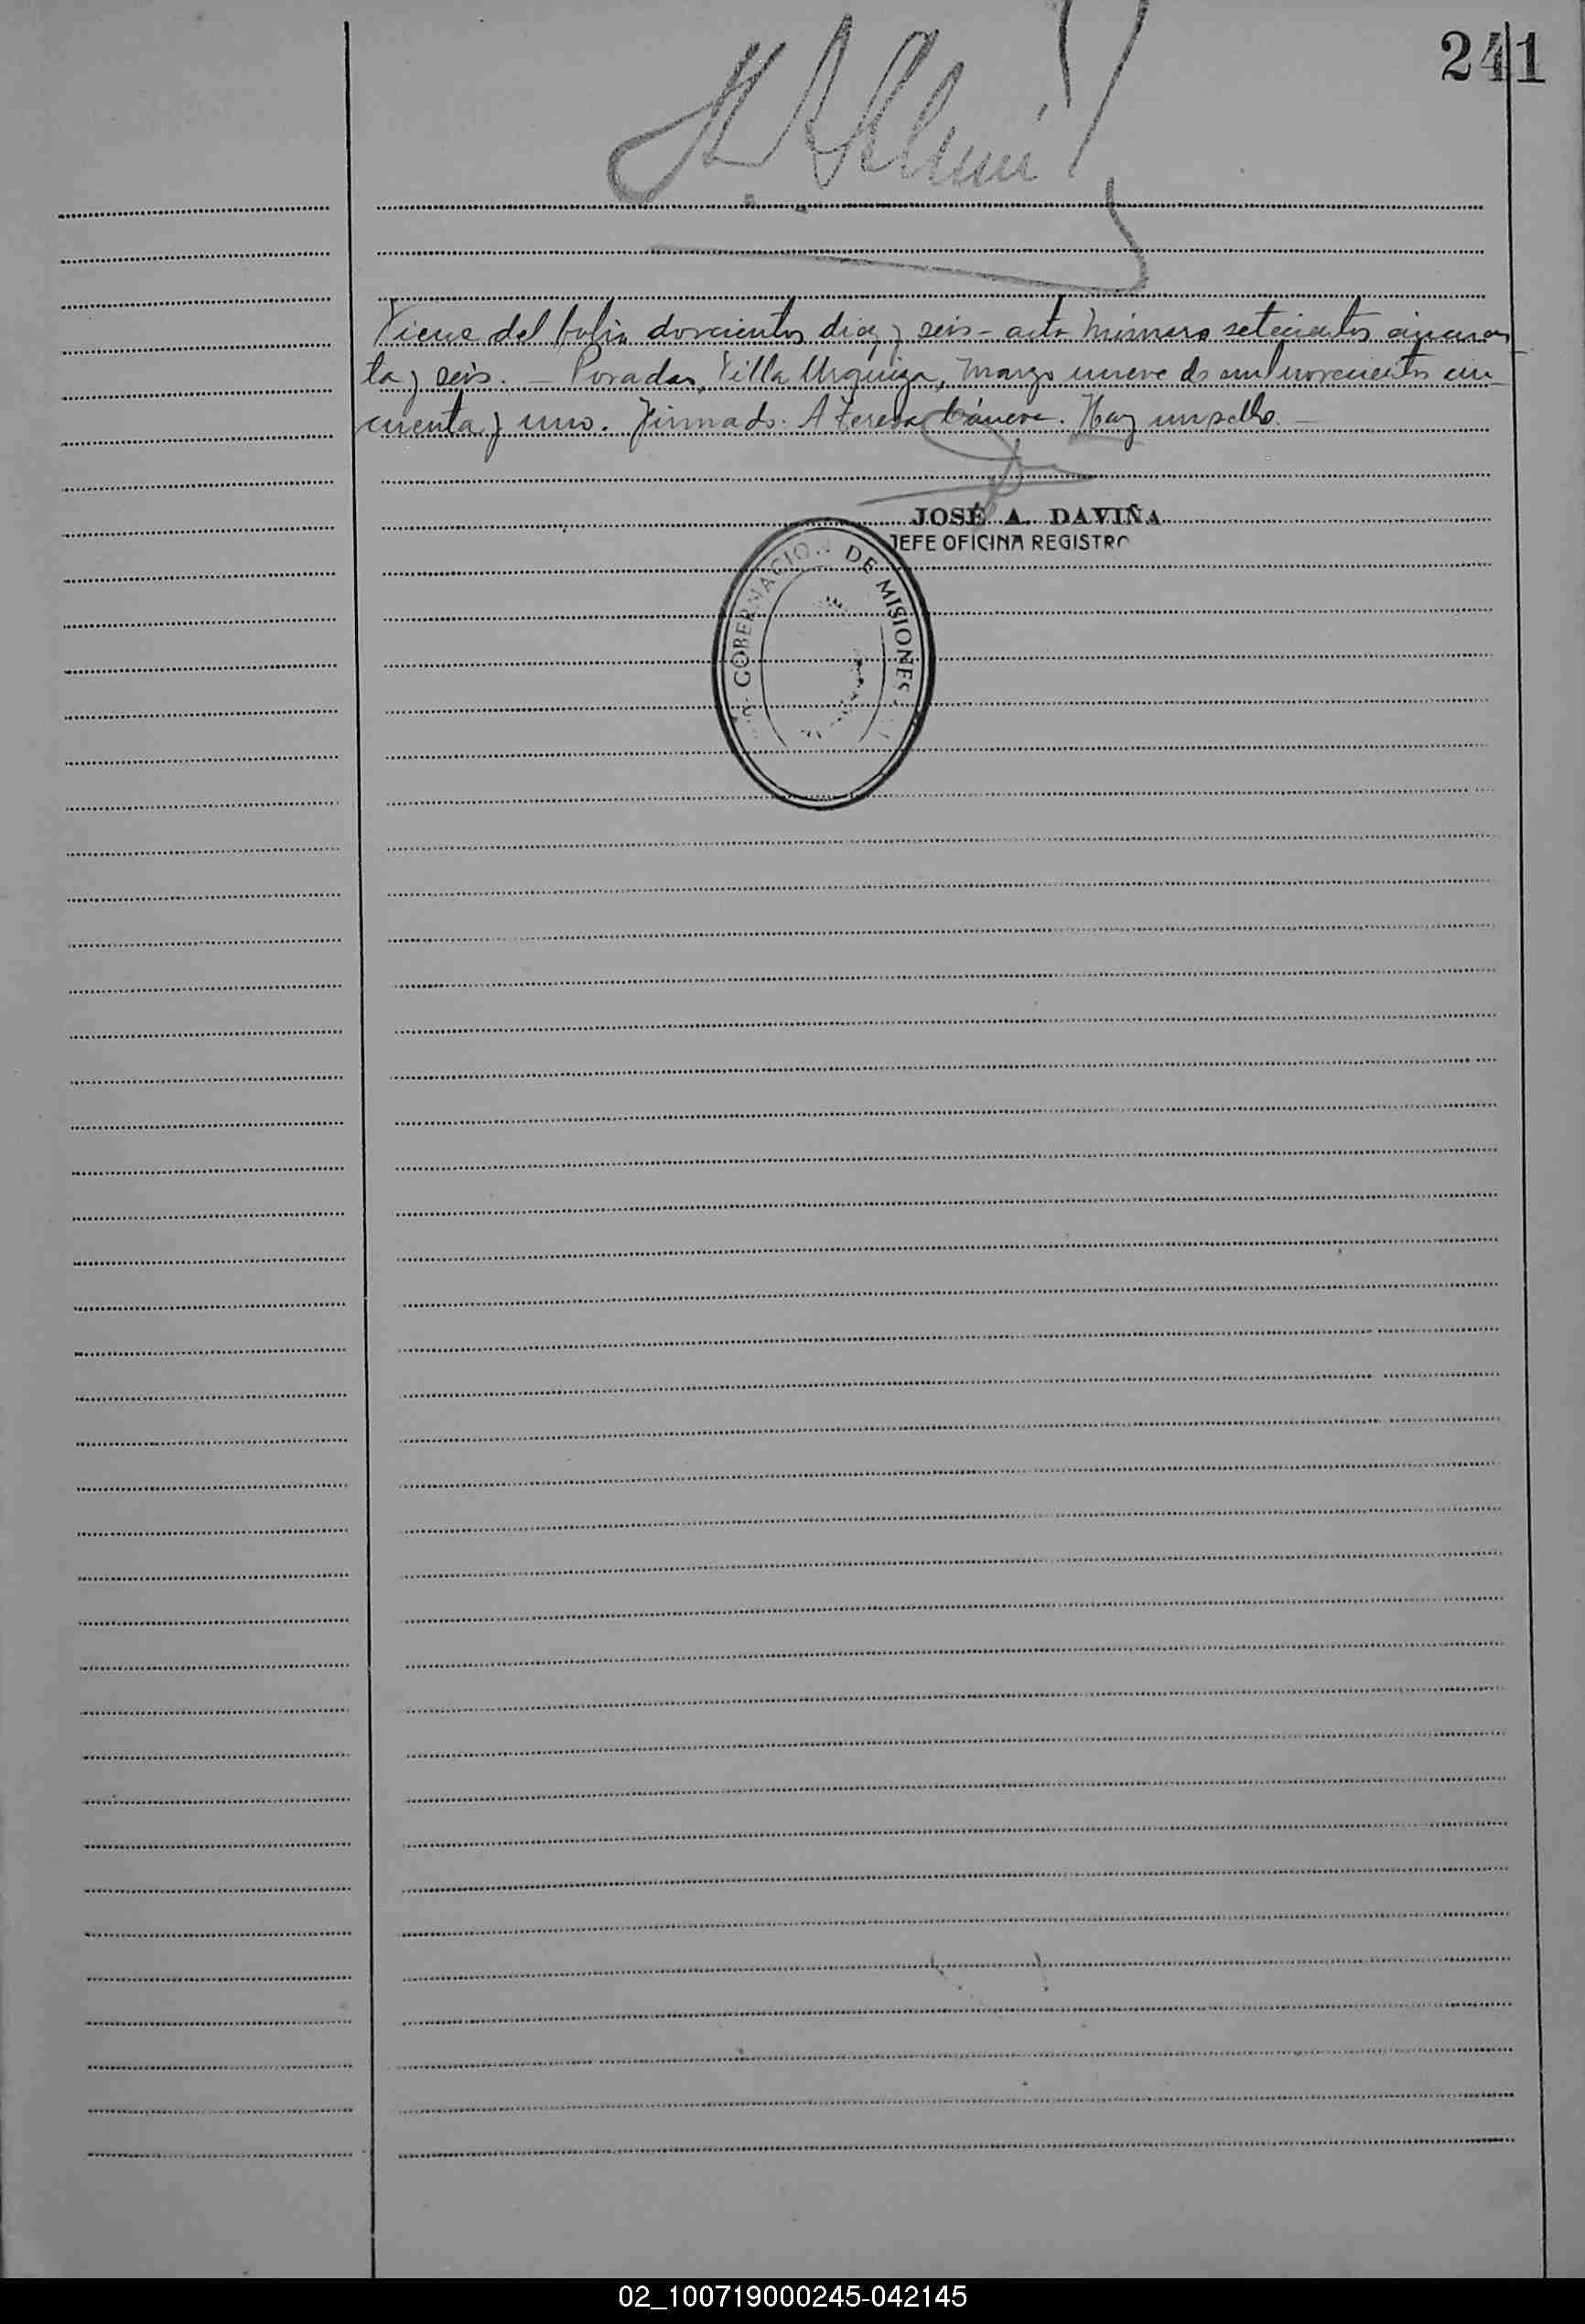 241
Viene del folio doscientos diez y seis - acta número setecientos cincuen
ta y seis. - Posadas, Villa Urquiza, marzo nueve de mil novecientos cin
cuenta y uno. Firmado: A Teresa Cánera. Hay un sello. -
JOSÉ A. DAVIÑA
JEFE OFICINA REGISTRO
GOBERNACION DE MISIONES
02_100719000245-042145